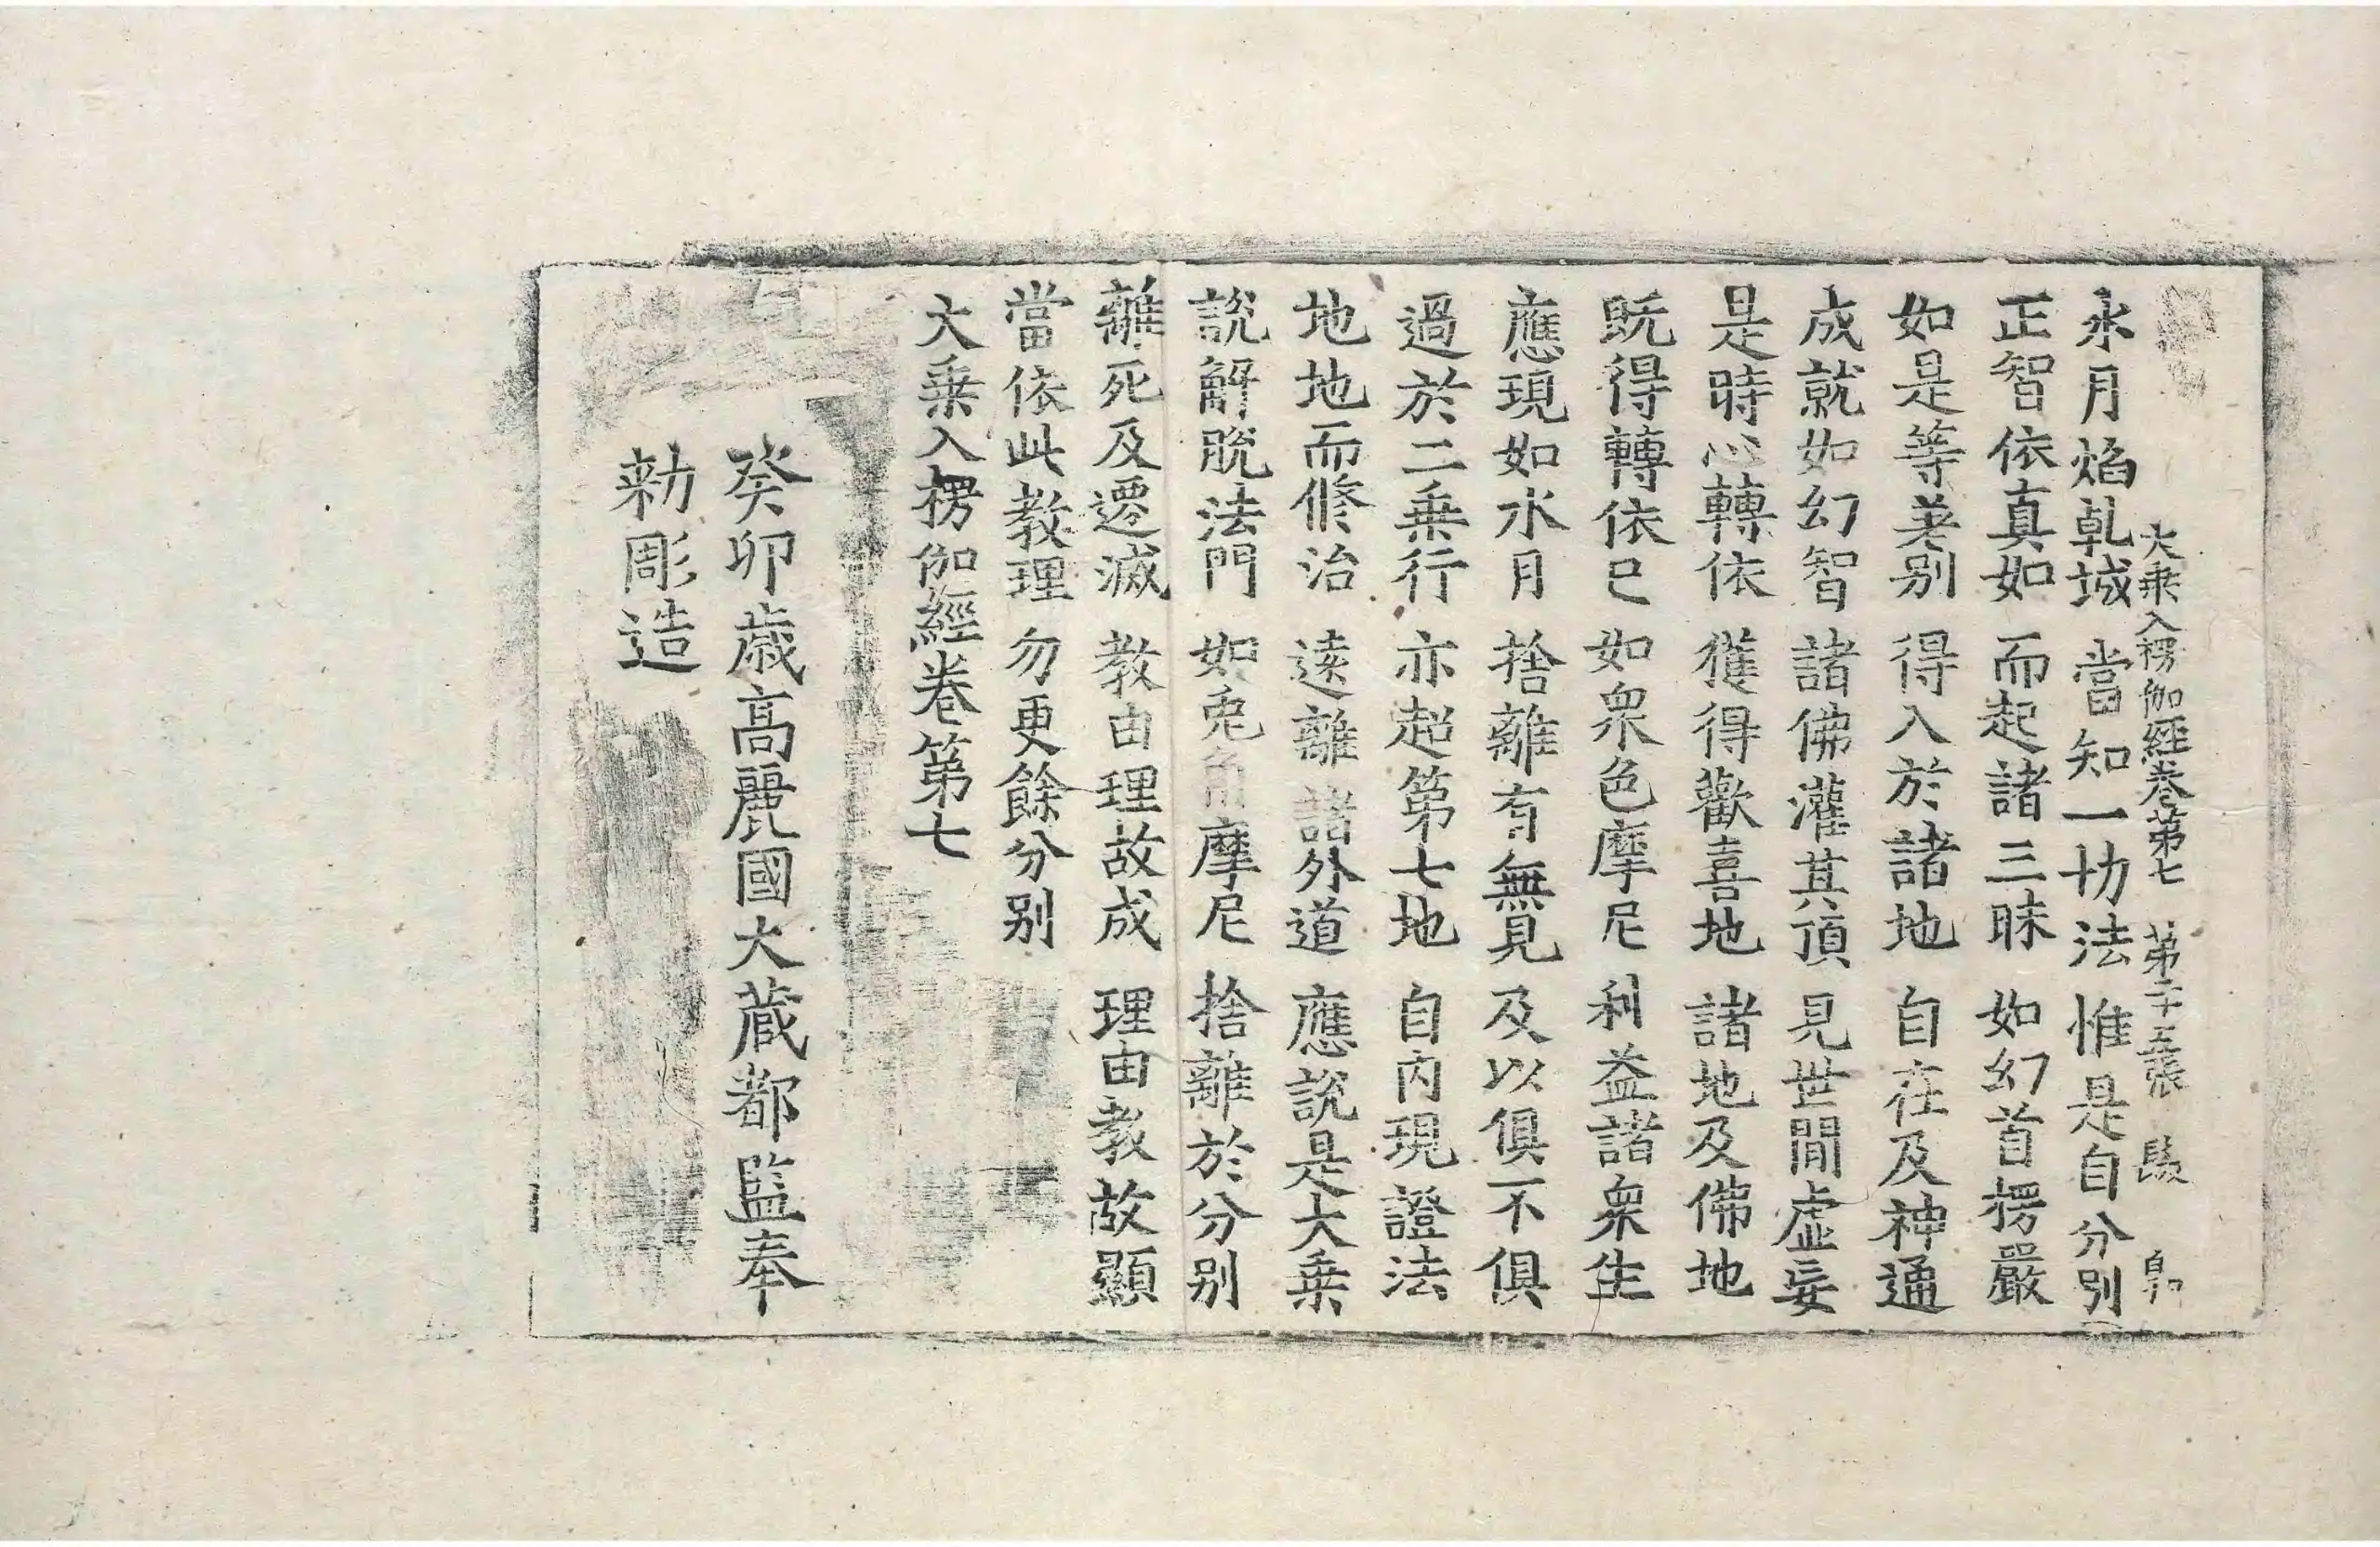 大乗入楞伽經卷第七 第二十五張
水月焰乹城 當知一切法 惟是自分別
正智依真如 而起諸三昧 如幻首楞嚴
如是等差別 得入於諸地 自在及神通
成就如幻智 諸佛灌其頂 見世間虛妄
是時心轉依 獲得歡喜地 諸地及佛地
既得轉依已 如衆色摩尼 利益諸衆生
應現如水月 捨離有無見 及以俱不俱
過於二乗行 亦超第七地 自內現證法
地地而修治 遠離諸外道 應說是大乗
說解脫法門 如兎角摩尼 捨離於分別
離死及遷滅 教由理故成 理由教故顯
當依此教理 勿更餘分別
大乗入楞伽經卷第七
癸卯歳高麗國大蔵都監奉
勑彫造